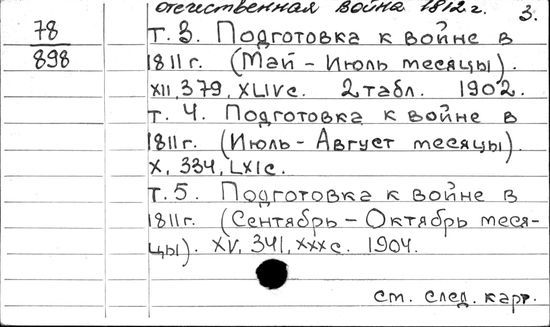 отечественная война 1812 г. 3.
78
898
т. 3. Подготовка к войне в
1811 г. (Май - Июль месяцы).
XII, 379, XLIV с. 2 табл. 1902.
т. 4. Подготовка к войне в
1811 г. (Июль - Август месяцы).
X, 334, LXI с.
т. 5. Подготовка к войне в
1811 г. (Сентябрь - Октябрь меся-
цы). XV, 341, XXX с. 1904.
см. след. карт.